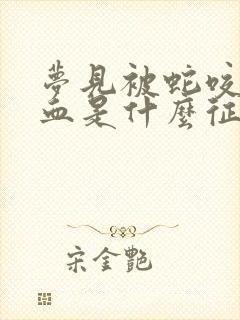 夢見被蛇咬
血是什麼征
宋金艷